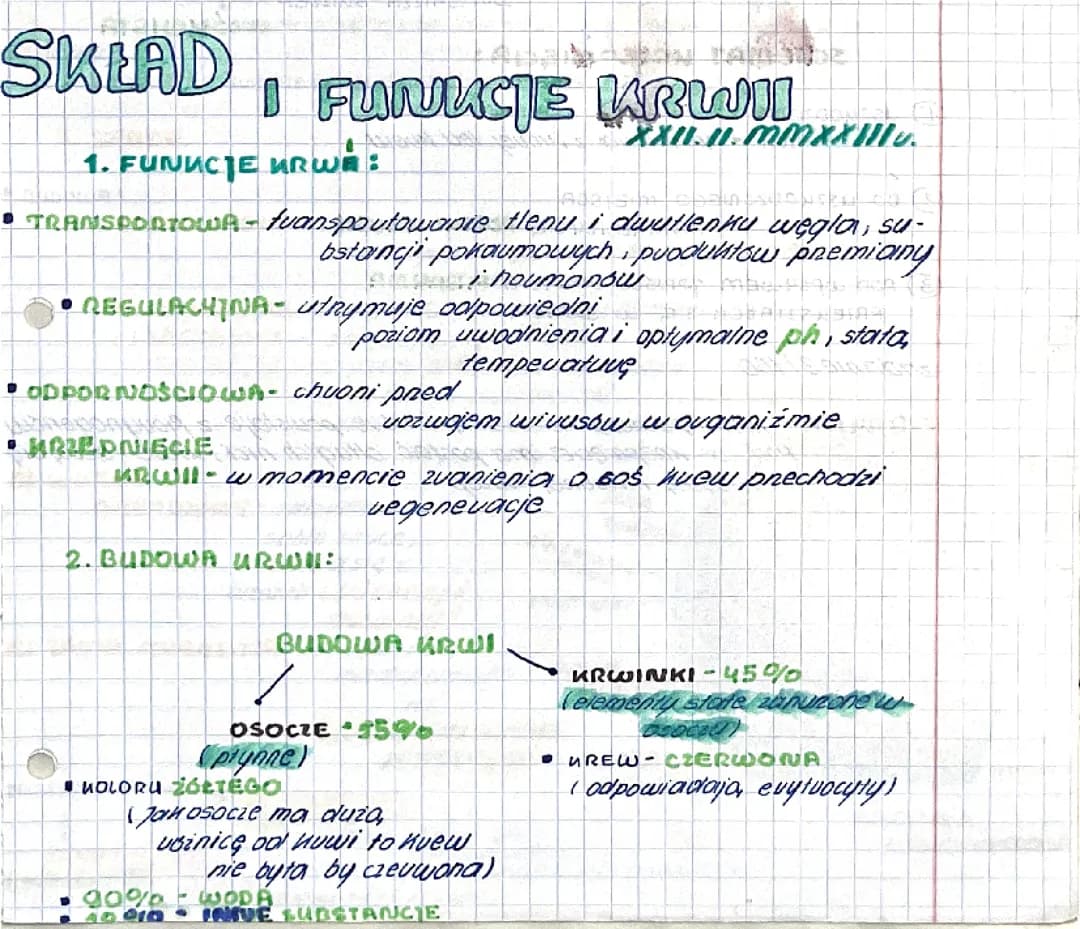 SKŁAD
I FUNKCJE KRWII
XXII.II.MMXXIII r.
1. FUNKCJE KRWI:
• TRANSPORTOWA - transportowanie tlenu i dwutlenku węgla, su-
bstancji pokarmowych, produktów przemiany
i hormonów
• REGULACYJNA - utrzymuje odpowiedni
poziom uwodnienia i optymalne ph, stałą
temperaturę
• ODPORNOŚCIOWA - chroni przed
rozwojem wirusów w organiźmie
• KRZEPNIĘCIE
KRWII - w momencie zranienia o coś krew przechodzi
regeneracje
2. BUDOWA KRWII:
BUDOWA KRWI
KRWINKI - 45%
(elementy stałe zanurzone w
osoczu)
OSOCZE • 55%
(płynne)
• KREW - CZERWONA
(odpowiadają erytrocyty)
• KOLORU ŻÓŁTEGO
(jak osocze ma dużą
różnicę od krwi to krew
nie była by czerwona)
• 90% - WODA
• 10% - INNE SUBSTANCJE